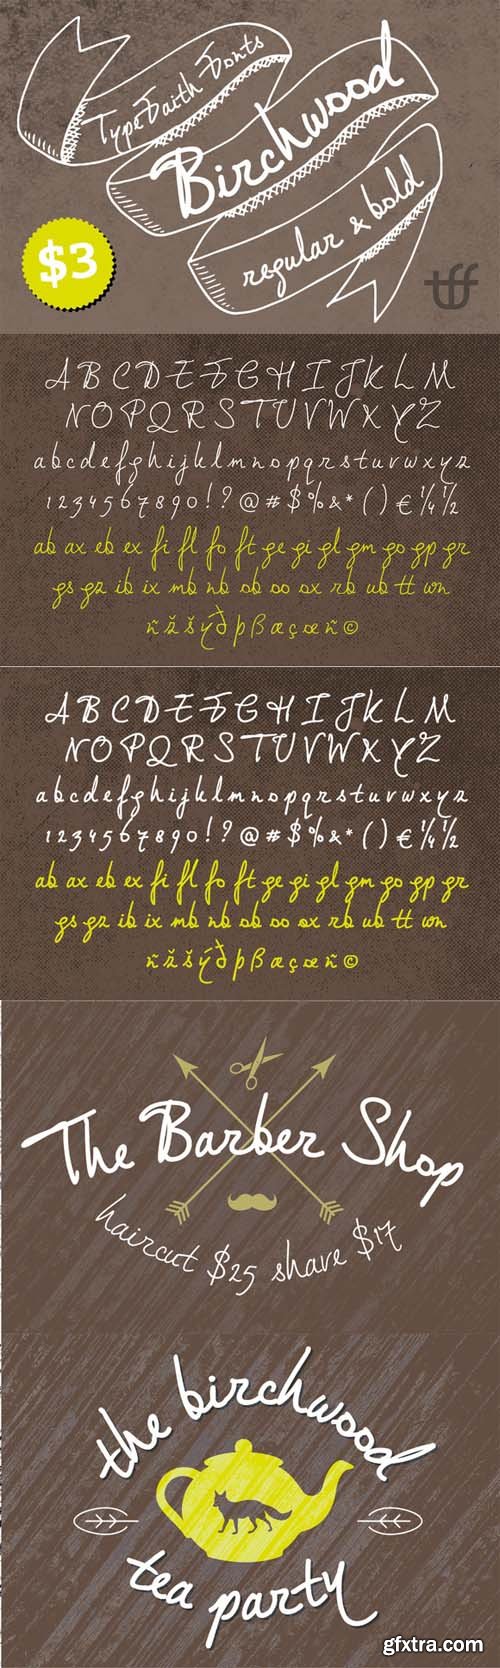 TypeFaith Fonts
Birchwood
regular & bold
$3
tff
A B C D E F G H I J K L M
N O P Q R S T U V W X Y Z
a b c d e f g h i j k l m n o p q r s t u v w x y z
1 2 3 4 5 6 7 8 9 0 ! ? @ # $ % & * ( ) € ¼ ½
ab ax eb ex fi fl fo ft ge gi gl gm go gp gr
gs gz ib ix mb nb ob oo ox rb ub tt wn
ň ž š ý ð þ ß æ ç œ ñ ©
A B C D E F G H I J K L M
N O P Q R S T U V W X Y Z
a b c d e f g h i j k l m n o p q r s t u v w x y z
1 2 3 4 5 6 7 8 9 0 ! ? @ # $ % & * ( ) € ¼ ½
ab ax eb ex fi fl fo ft ge gi gl gm go gp gr
gs gz ib ix mb nb ob oo ox rb ub tt wn
ň ž š ý ð þ ß æ ç œ ñ ©
The Barber Shop
haircut $25 shave $17
the birchwood
tea party
gfxtra.com